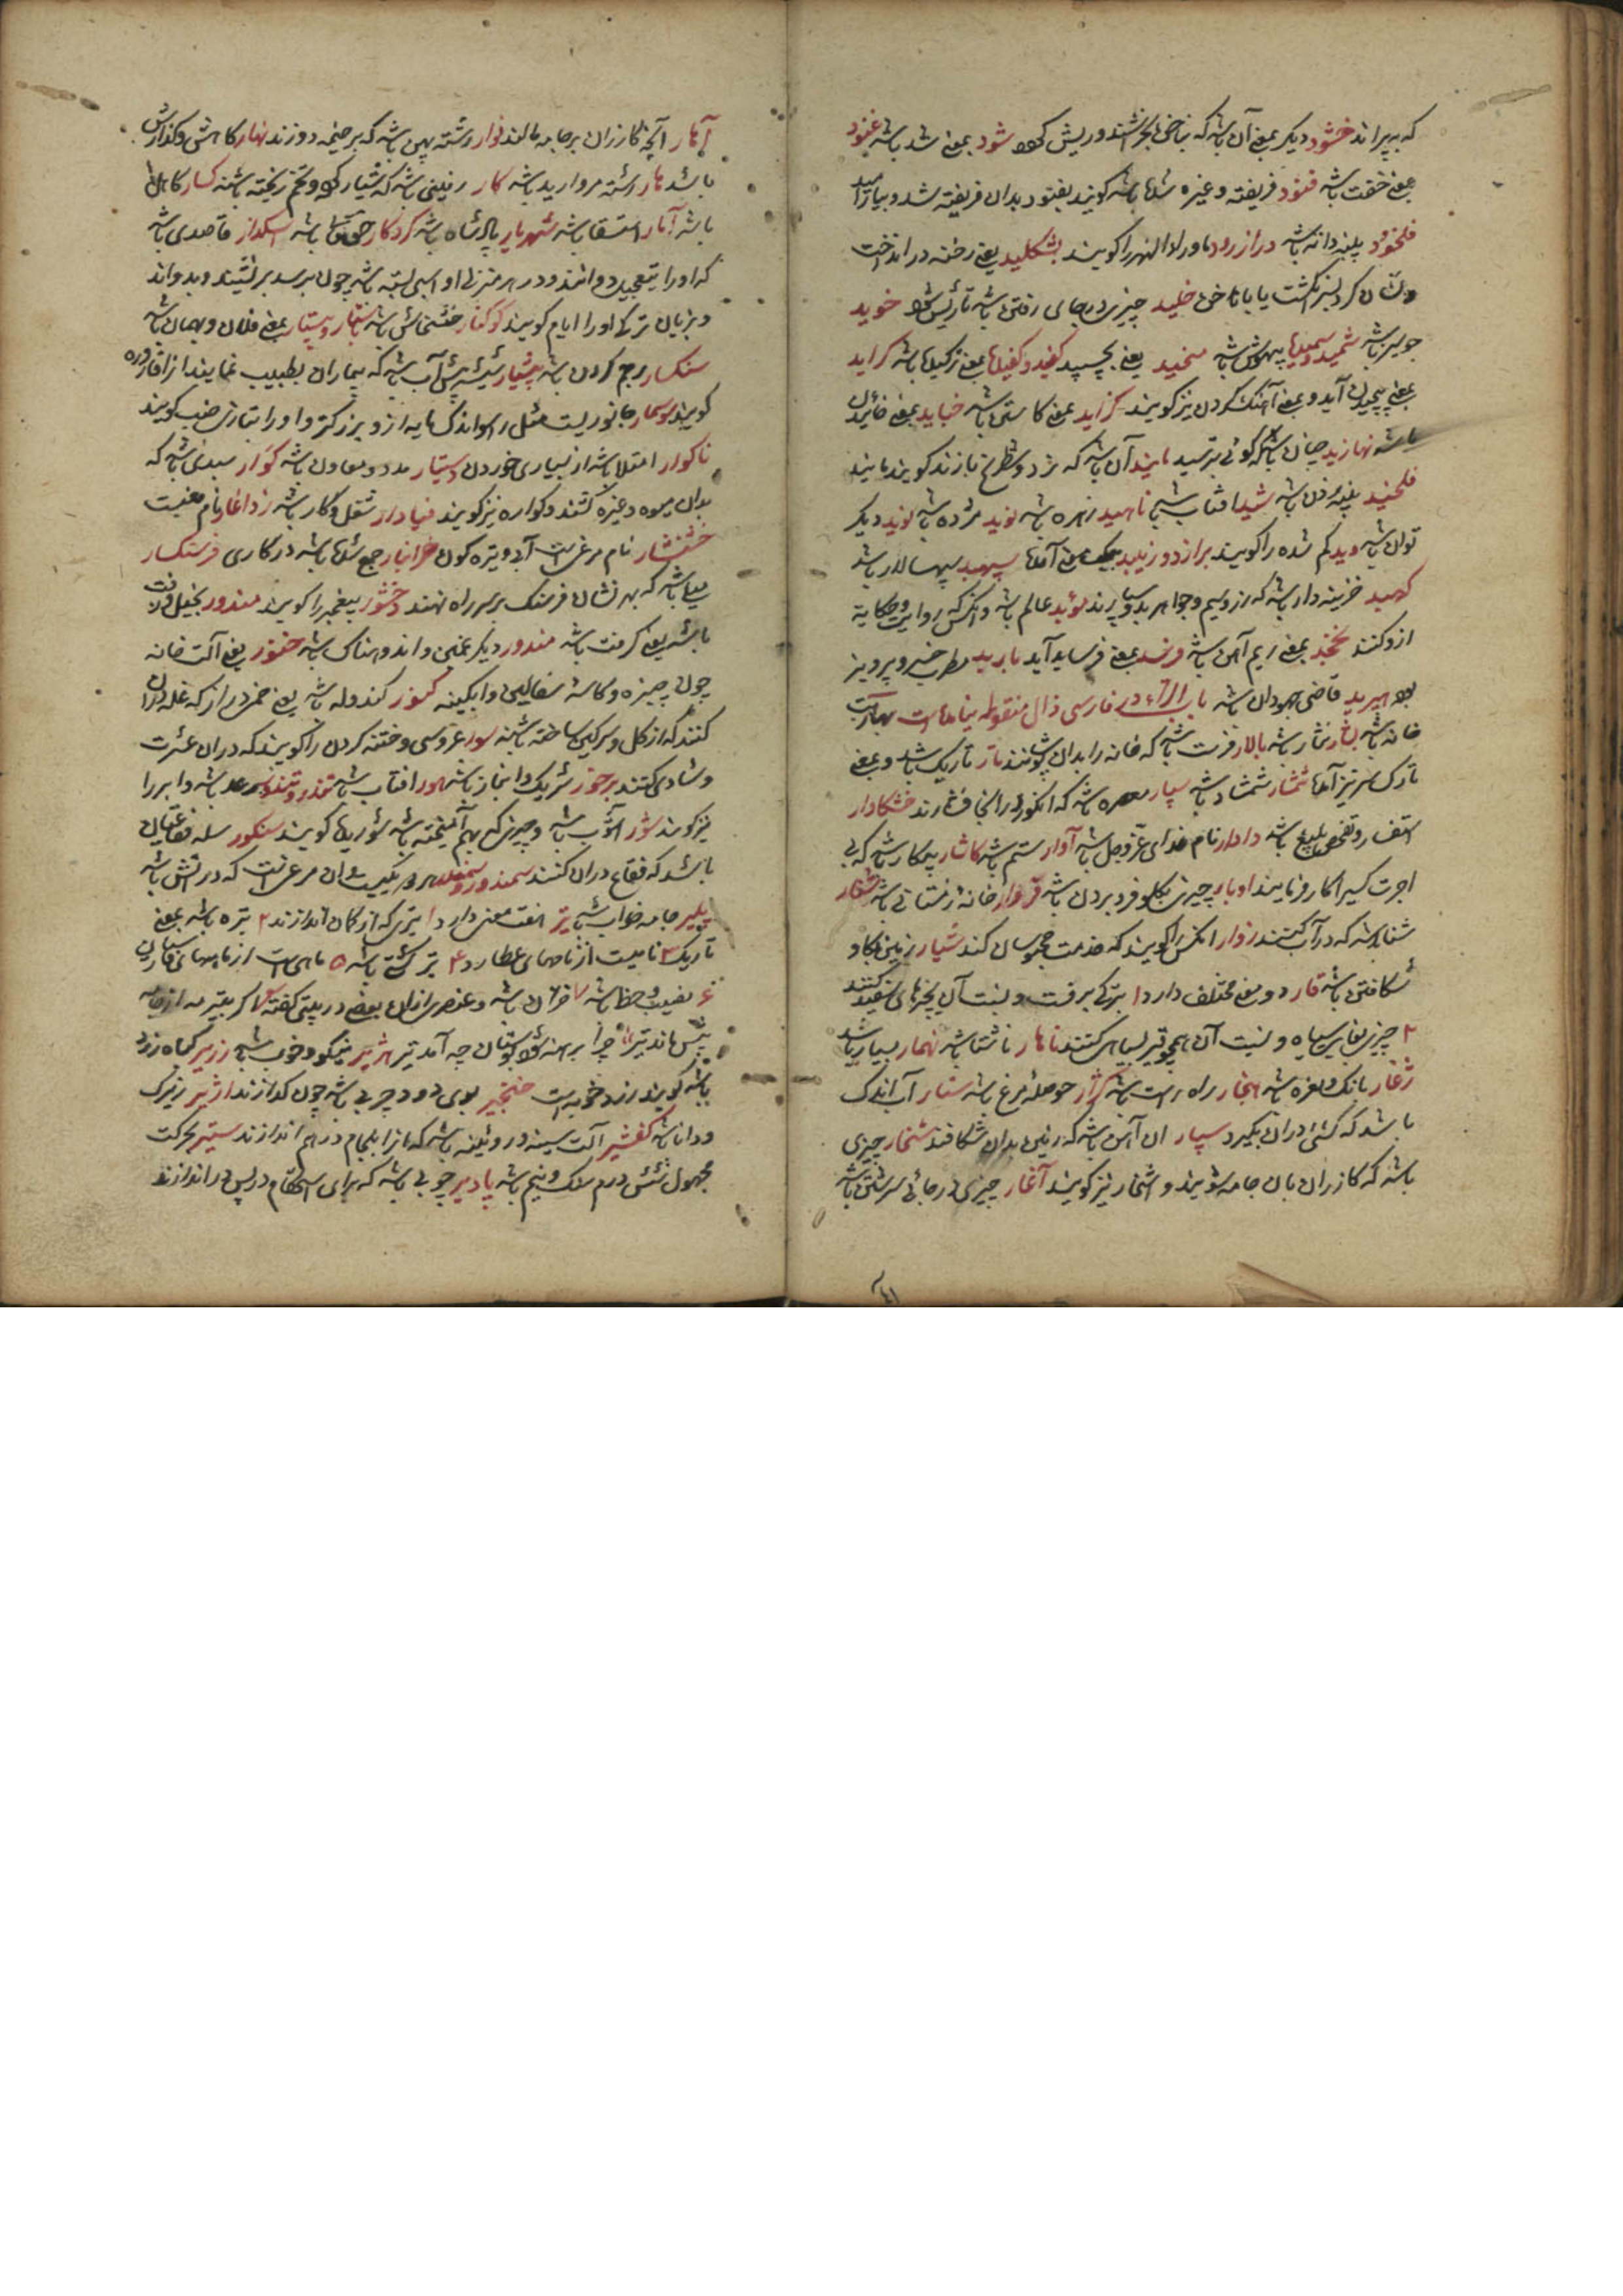 که بپراند خشود دیگر بمعنی آن باشد که بناخن بخراشند و ریش کرده شود بمعنی شد باشد غنود
بمعنی خفت باشد فنود فریفته و غیره شدن باشد گویند بفنود بدان فریفته شد و بیارامید
فلخود پنبه دانه باشد درازرود ماورالنهر را گویند بشکلید یعنی رخنه در انداخت
و نشان کرد بسر انگشت یا با ناخن خلید چیزی در جای رفتن باشد تا ریش شود خوید
جو سبز باشد شمید و سمید بیهوش باشد مخید یعنی بچسپید کفید و کفیدها بمعنی ترکیدها باشد گراید
بمعنی پیچیدن آید و بمعنی آهنگ کردن نیز گویند گزاید بمعنی کاستن باشد خباید بمعنی خائیدن
باشد نهازید چنان باشد که گوئی بترسید مانید آن باشد که نرد و شطرنج بازند گویند مانید
فلخید پنبه زدن باشد شید افتاب باشد ناهید زهره باشد نوید مژده باشد نوید دیگر
توان باشد وید کم شده را گویند براز دو زیبد بمعنی آمدها سپهبد سپهسالار باشد
کهبد خزینه دار باشد که زر و سیم و جواهر بدو سپارند موبد عالم باشد و آنکس که روایت و حکایة
ازو کنند نخجد بمعنی ریم آهن باشد فرسد بمعنی فرساید آید باربد مطرب خسرو پرویز
بود هیربد قاضی جهودان باشد باب الراء در فارسی ذال منقوطه نیامده است بهار بت
خانه باشد نثار باشد بالار فرسب باشد که خانه را بدان پوشانند تار تاریک باشد و بمعنی
تارک سر نیز آمده شمشار شمشاد باشد سپار باشد که انگور در انجا فشارند خشکامار
استفسار و تفحص بلیغ باشد دادار نام خدای عزوجل باشد آوار ستم باشد کاشار بیکار باشد که بی
اجرت کسیرا کار فرمایند اوبار چیزی بگلو فرو بردن باشد قروار خانه زمستانی باشد شنار
شناه باشد که در آب کنند زوار آنکس را گویند که خدمت محبوسان کند شیار زمین بگاو
شکافتن باشد قار دو معنی مختلف دارد ۱ بترکی برفست و نسبت آن بچیزهای سفید کنند
۲ چیزی بغایت سیاه و نسبت آن همچو قیر بسیاهی کنند ناهار ناشتا باشد نهمار بسیار باشد
ژغار بانگ و نعره باشد هنجار راه راست باشد گژار حوصله مرغ باشد ستار آب اندک
باشد که کشتی دران بگیرد سپار آن آهن باشد که زمین بدان شکافند شخار چیزی
باشد که کازران بان جامه شویند و اشخار نیز گویند آغار چیزی در جائی سرشتن باشد
آهار آنچه کازران بر جامه مالند نوار رشته پهن باشد که بر خیمه دوزند نهار کاهش و گدازش
باشد هار رشته مروارید باشد کار زمینی باشد که شیار کرده و تخم ریخته باشند کسار کاهل
باشد آمار استسقا باشد شهریار پادشاه باشد کردکار حق تعالی باشد اسکدار قاصدی باشد
که او را بتعجیل دوانند و در هر منزلی او اسپی بسته باشد چون برسد برنشیند و بدواند
و بزبان ترکی او را ایام گویند کوکنار خشخاش باشد باستار و بیستار بمعنی فلان و بهمان باشد
سنگسار رجم کردن باشد پیشیار شیشه پیش آب باشد که بیماران بطبیب نمایند از آن قاروره
گویند سوسمار جانوریست مثل راسو اندک مایه ازو بزرگتر و او را بتازی ضب گویند
ناگوار امتلا باشد از بسیاری خوردن دستیار مدد و معاون باشد کوار سبدی باشد که
بدان میوه و غیره کشند و کواره نیز گویند فیادار شغل و کار باشد زداغار نام مغنیست
خشنسار نام مرغیست آبی و تیره گون انبار جمع شدها باشد در کاری فرسنکسار
میل باشد که بهر نشان فرسنگ بر سر راه نهند وخشور پیغمبر را گویند مندور بخیل و زفت
باشد یعنی گرفت باشد مندور دیگر غمین و اندوهناک باشد خنور یعنی آلت خانه
چون چیزه و کاسه سفالین و آبکینه کنور کندوله باشد یعنی خمی دراز که غله دران
کنند که از گل و سرگین ساخته باشند سور عروسی و ختنه کردن را گویند که دران عشرت
و شادی کنند برخور شریک و انباز باشد هور افتاب باشد تندر و تندور رعد باشد و ابر را
نیز گویند شور آشوب باشد و چیزی که بهم آمیخته باشد شوریده گویند سنکور سله فقاعیان
باشد که فقاع دران کنند سمندور و سمندر هر دو یکیست و آن مرغیست که در آتش باشد
جامه خواب باشد تیر هفت معنی دارد ۱ تیری که از کمان اندازند ۲ تیره باشد بمعنی
تاریک ۳ نامیست از نامهای عطارد ۴ تیر کشتی باشد ۵ ماهی است از ماههای پارسیان
۶ نصیب و حظ باشد ۷ خزان باشد
باشد گویند زرد چوبه است خنجیر بوی دود چربی باشد چون گدازند اژیر زیرک
و دانا باشد کفشیر آلت مسینه و روئینه باشد که آنرا بلحام درهم اندازند ستیر بحرکت
مجهول شش درم سنگ و نیم باشد پادیر چوبی باشد که برای استحکام در پس در اندازند